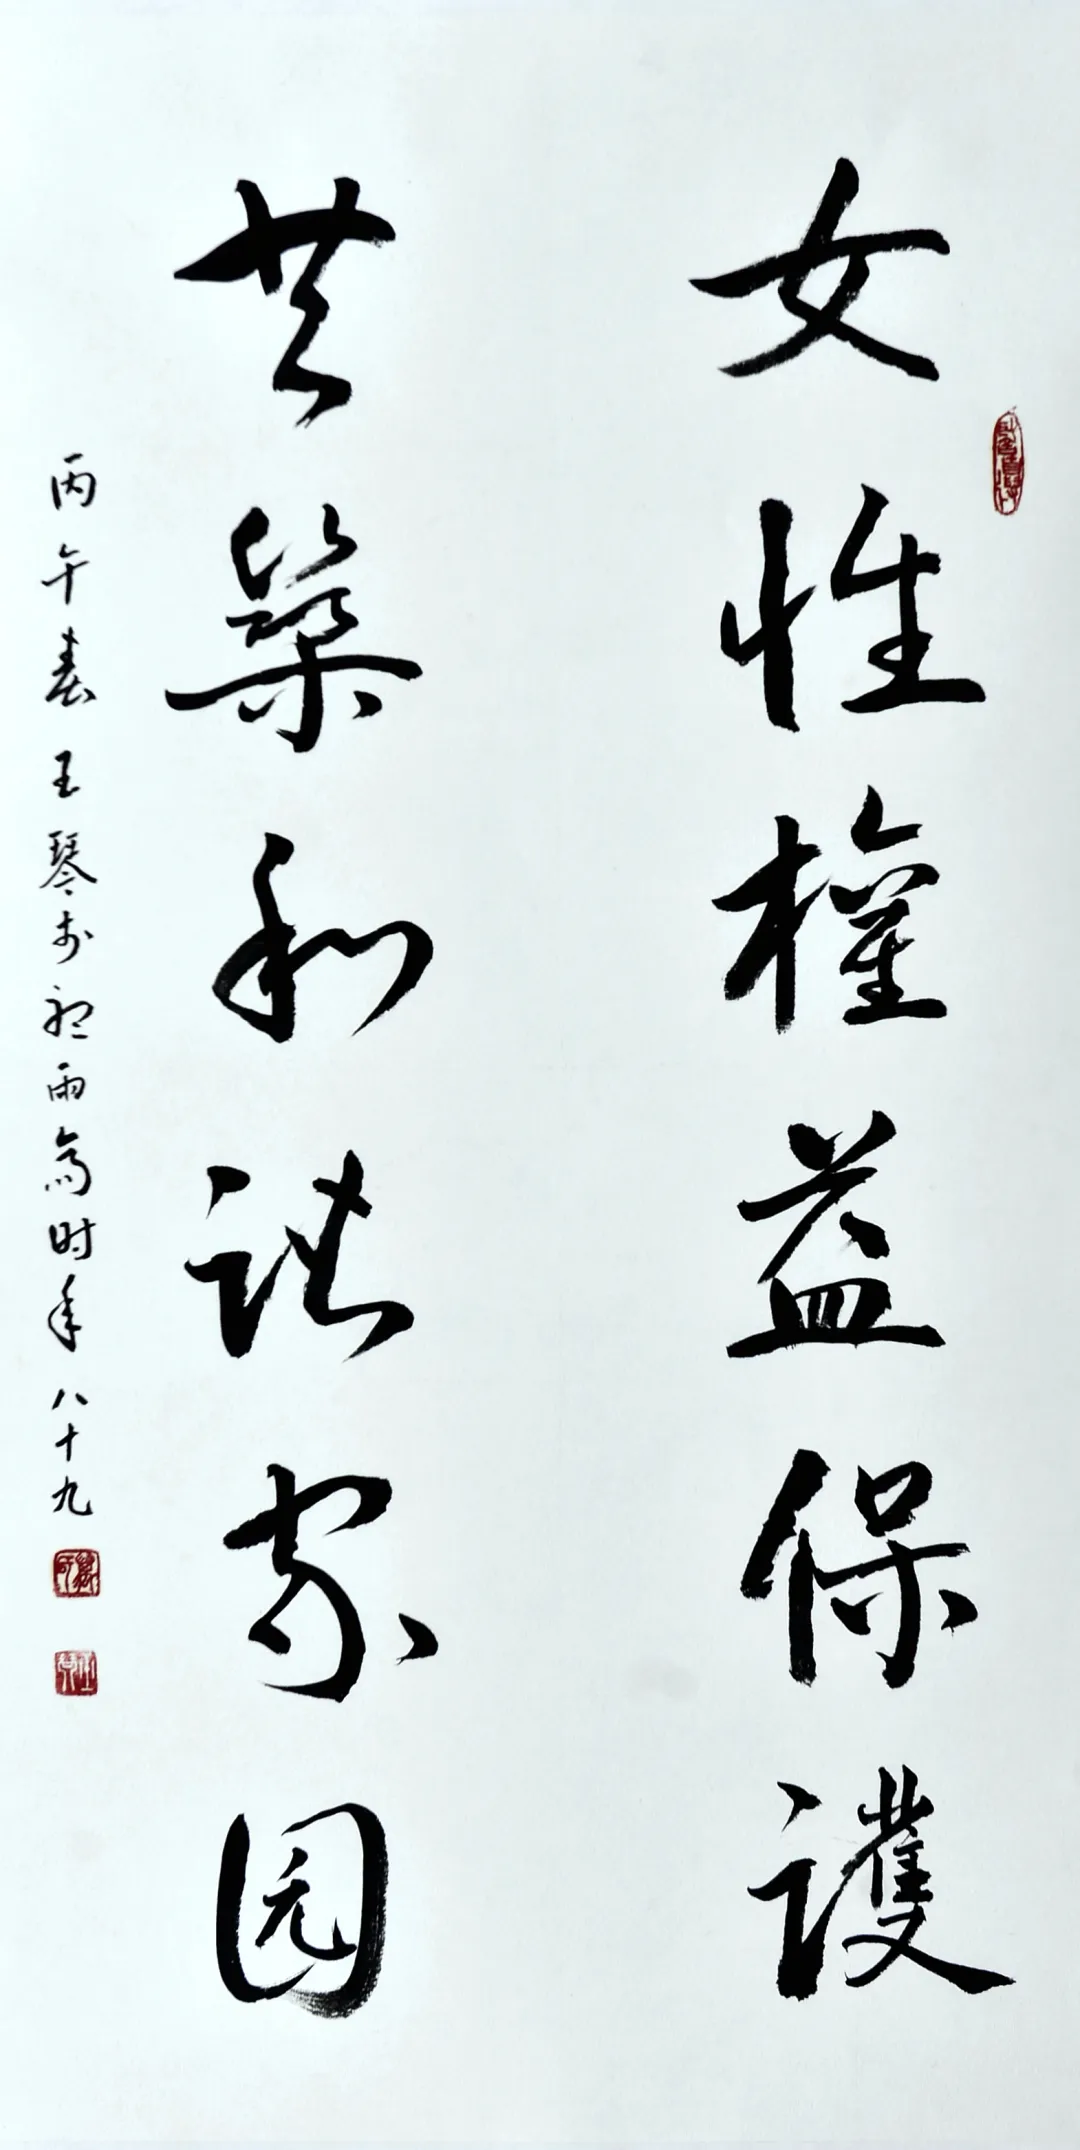 女性權益保護
共築和諧家园
丙午春王琴於聽雨斋时年八十九